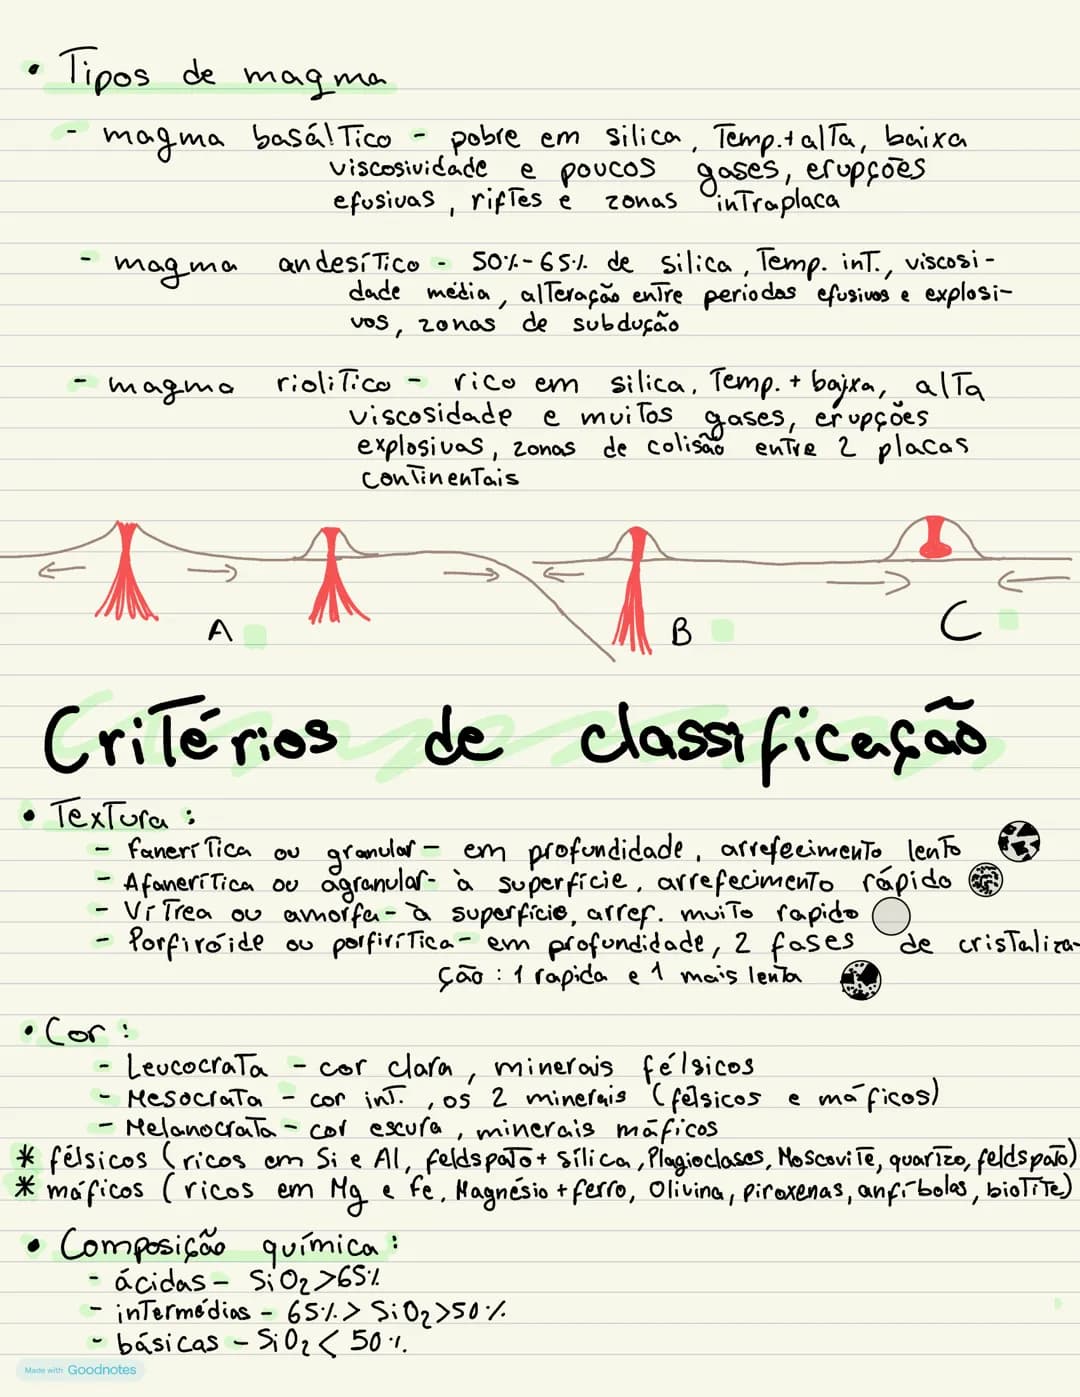 • Tipos de magma
- magma basáltico - pobre em silica, Temp.+ alta, baixa
viscosividade e poucos gases, erupções
efusivas, riftes e zonas intraplaca
- magma andesítico - 50%-65% de silica, Temp. int., viscosi-
dade média, alteração entre periodos efusivos e explosi-
vos, zonas de subdução
- magma riolitico - rico em silica, Temp. + bajxa, alta
viscosidade e muitos gases, erupções
explosivas, zonas de colisão entre 2 placas
continentais
A B C
Critérios de classificação
• Textura :
- fanerítica ou granular - em profundidade, arrefecimento lento
- Afanerítica ou agranular - à superfície, arrefecimento rápido
- Vítrea ou amorfa - à superfície, arref. muito rapido
- Porfiróide ou porfirítica - em profundidade, 2 fases de cristaliza-
ção : 1 rapida e 1 mais lenta
• Cor :
- Leucocrata - cor clara, minerais félsicos
- Mesocrata - cor int. , os 2 minerais (félsicos e máficos)
- Melanocrata - cor escura, minerais máficos
* félsicos (ricos em Si e Al, feldspato + sílica, Plagioclases, Moscovite, quartzo, feldspato)
* máficos (ricos em Mg e Fe, Magnésio + ferro, Olivina, piroxenas, anfíbolas, biotite)
• Composição química :
- ácidas - SiO₂ >65%
- intermédias - 65% > SiO₂ >50%
- básicas - SiO₂ < 50%.
Made with Goodnotes